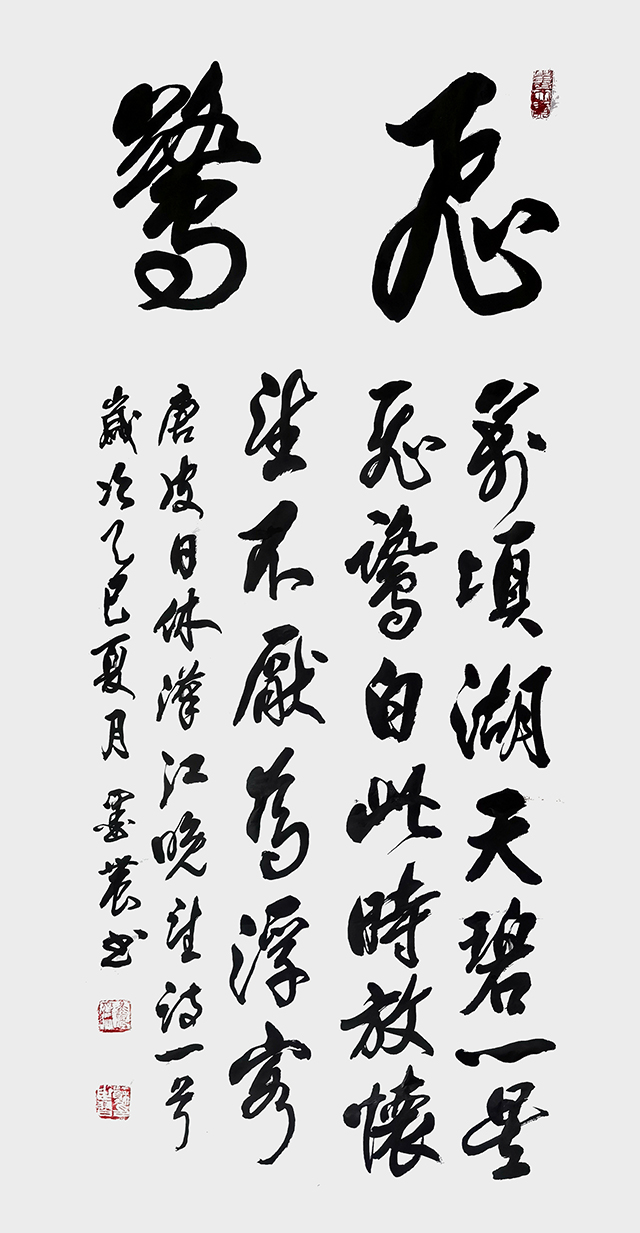 飛鷺
萬頃湖天碧一星
飛鷺白此時放懷
望不厭為浮客
唐皮日休漢江曉望詩一首
歲次乙巳夏月 墨農書